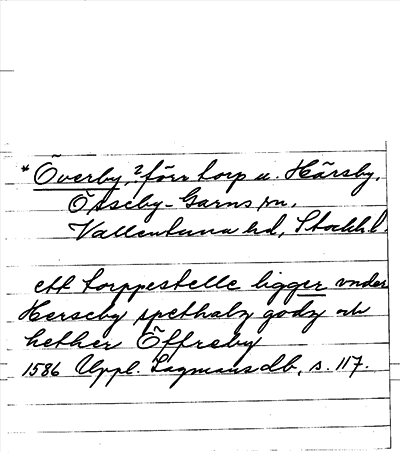 * Överby, ? förr torp u. Härsby,
Össeby-Garns sn.
Vallentuna hd, Stockh. l.
ett torppestelle ligger vnder
Herseby spethalz godz och
hether Öffreby
1586 Uppl. Lagmansdb, s. 117.